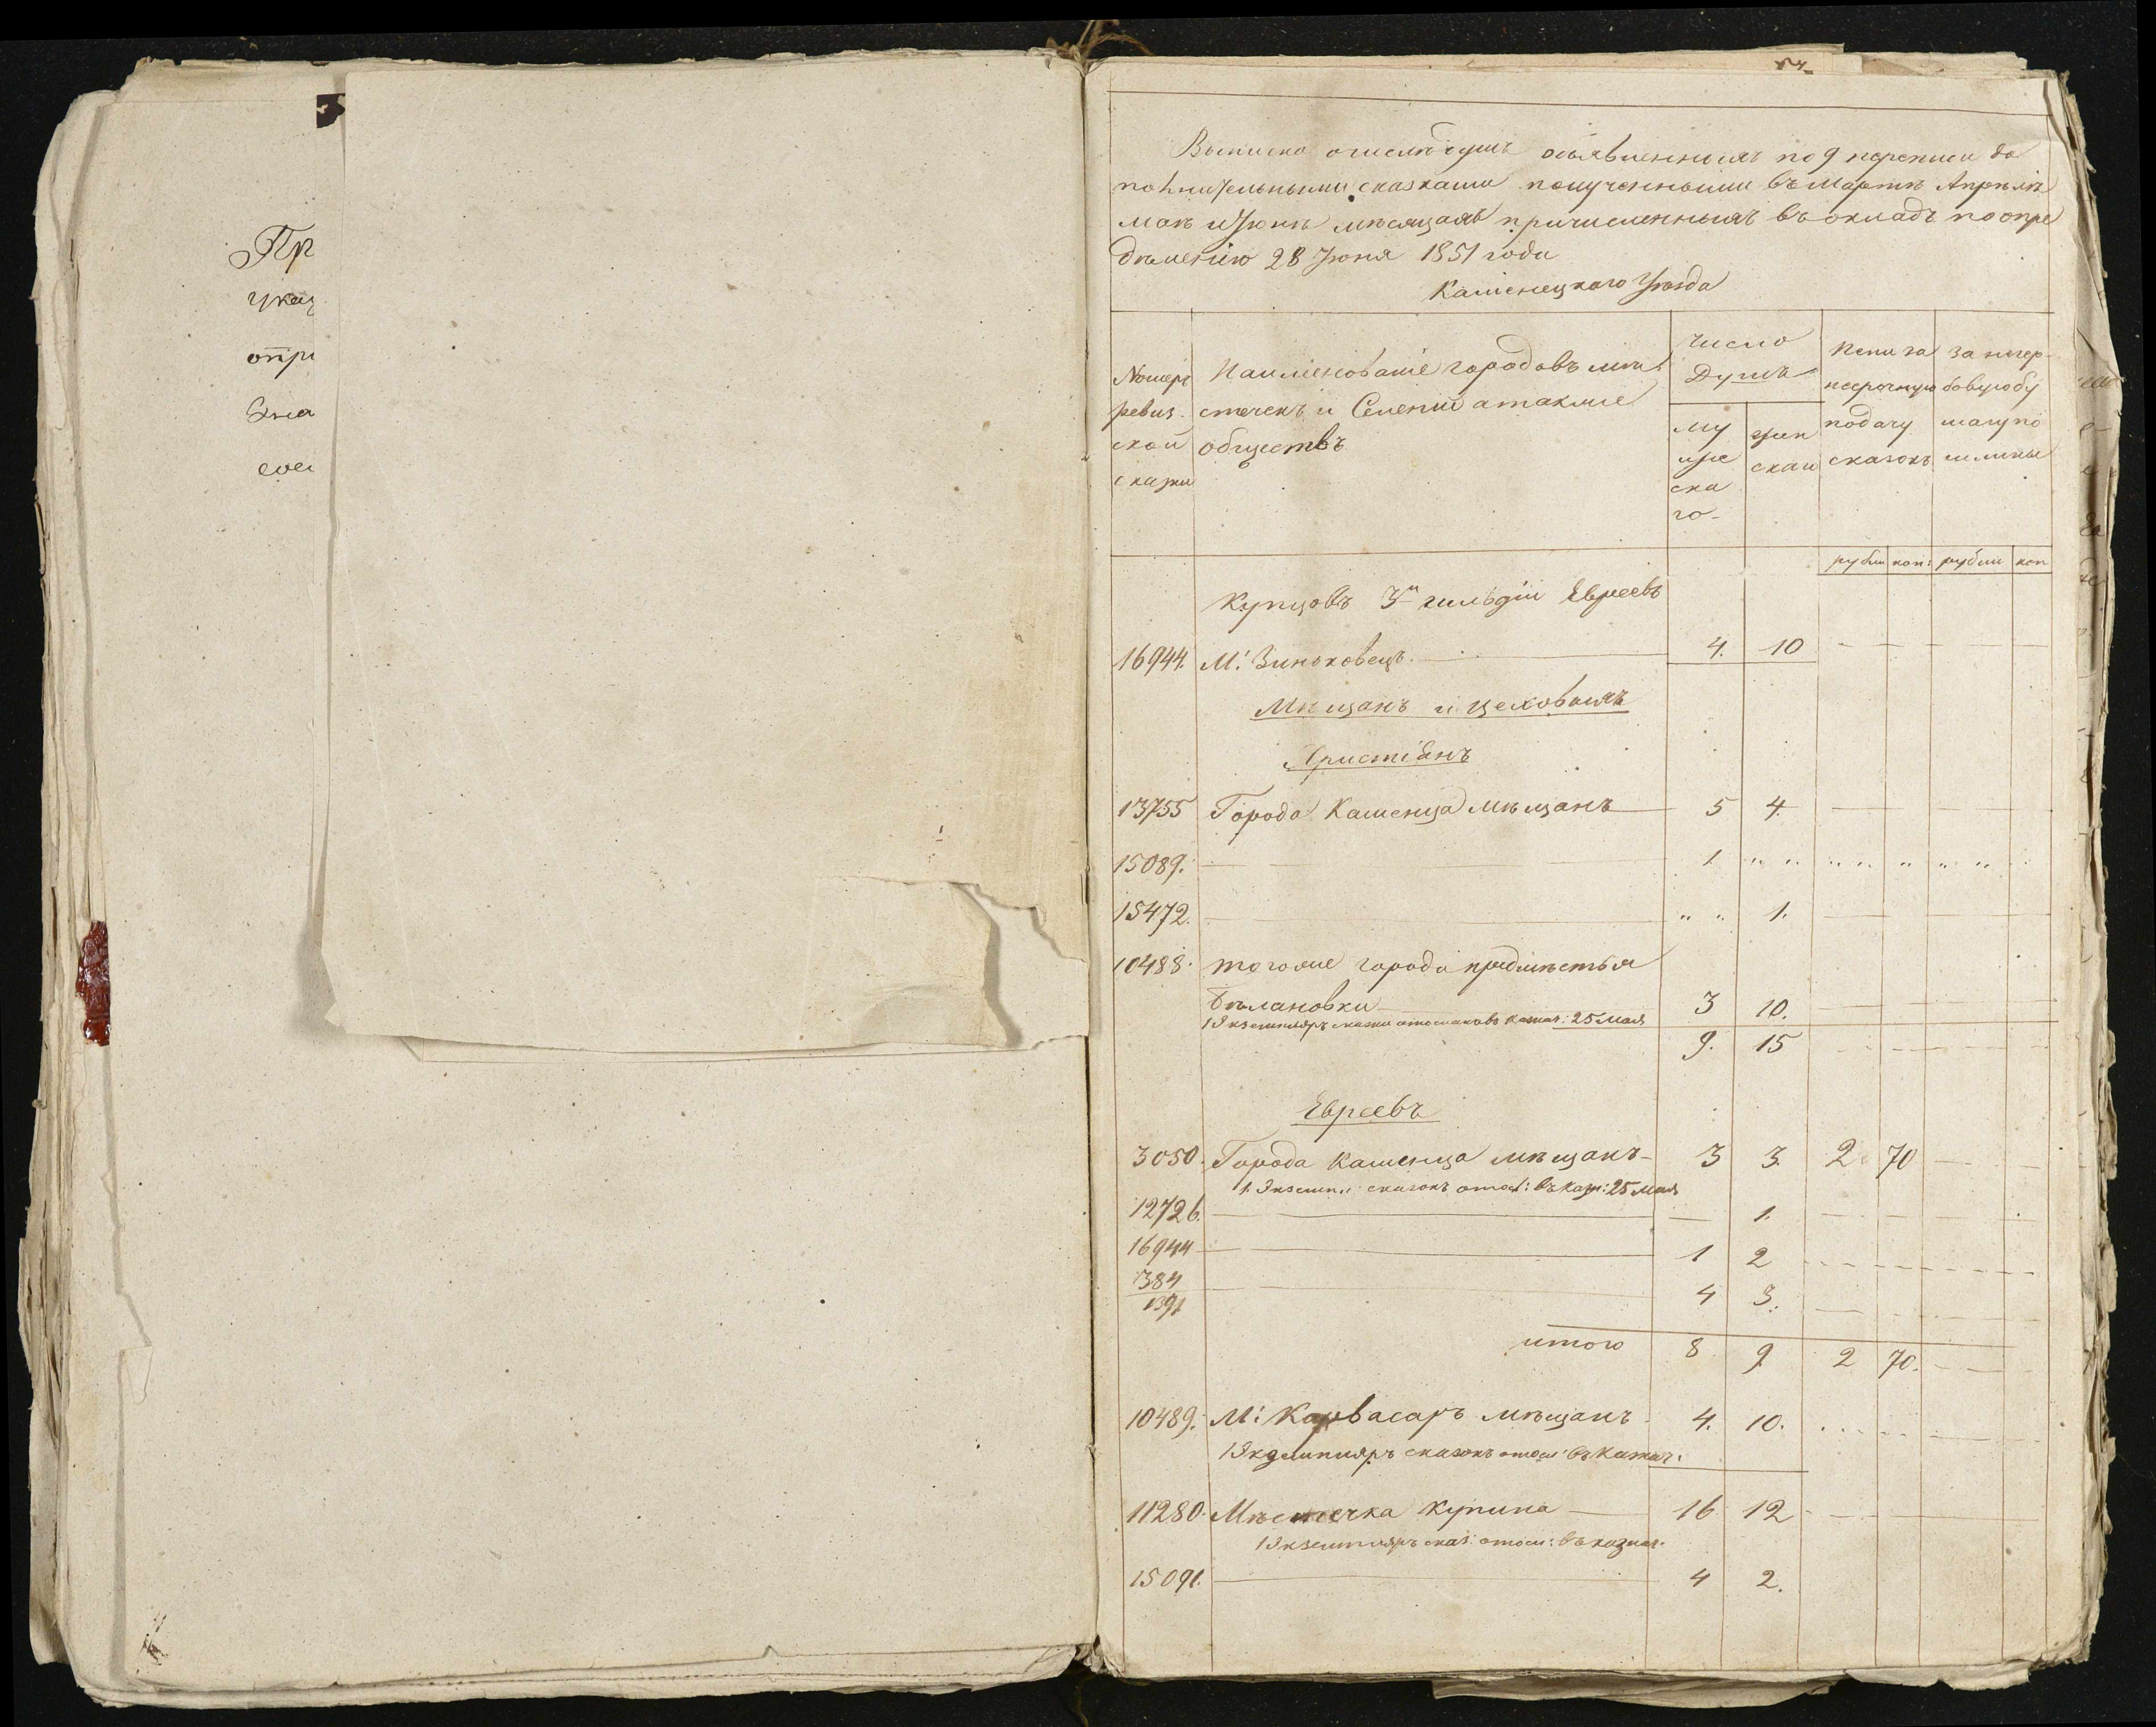 Пр
указ
опри
Зна
сеи
Выписка о числѣ душъ объявленныхъ по 9 переписи до
полнительными сказками полученными въ Мартѣ Апрѣлѣ
маѣ и Іюнѣ мѣсяцахъ причисленныхъ въ окладъ по опре
дѣленію 28 Іюня 1851 года
Каменецкого Уѣзда
Номеръ ревиз- ской сказки
Наименованіе городовъ мѣ- стечекъ и Селеній а также обществъ
Число Душъ
му жес ка го-
жен скаи
Пени за несрочную подачу сказокъ
За негер- бовую бу магу по шлины
рубли коп: рубли коп
Купцовъ 3й гильдіи Евреевъ
16944. М: Зиньковецъ. 4. 10 — — — —
Мѣщанъ и цеховыхъ
Христіянъ
13755 Города Каменца Мѣщанъ 5 4. — — —
15089. — — 1. „ „ „ „ „ „ „
15472. — „ „ 1.
10488. того же города предмѣстья
Бѣлановки 3 10. — — —
1 Экземпляръ сказки отосланъ въ Казнач: 25 Мая
9. 15 — — — —
Евреевъ
3050. Города Каменца мѣщанъ- 3 3. 2 70 — —
1. Экземп: сказокъ отосл: въ Казн: 25 Мая
12726. — — 1. — — — —
16944 — 1 2
384/1391 — 4 3. —
итого 8 9 2 70. — —
10489. М: Карвасаръ мѣщанъ 4. 10.
1 Экземпляръ сказокъ отосл: въ Казнач:
11280. Мѣстечка Купина — 16 12 — —
1 Экземпляръ сказ: отосл: въ казнач.
15091. — 4 2.